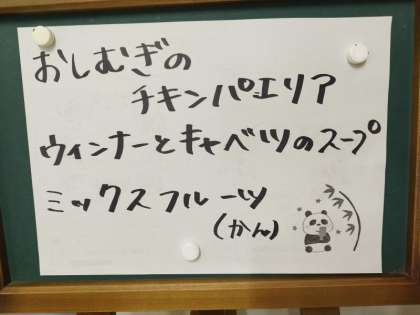 おしむぎの
チキンパエリア
ウィンナーとキャベツのスープ
ミックスフルーツ
(かん)